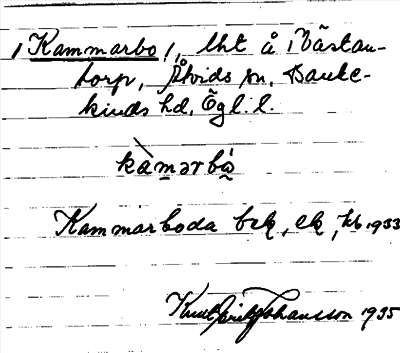 /Kammarbo/, lht å Nästan-
torp, Åtvids sn, Banke-
kinds hd, Ögl. l.
kàmərbὼ
Kammarboda bek, ek, kb 1933
Knut Johansson 1935